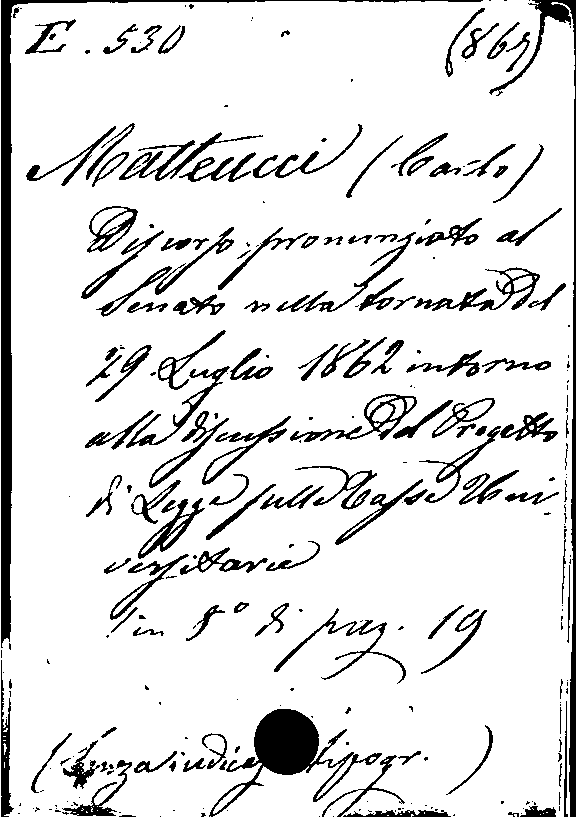 E. 530 (869)
Matteucci (Carlo)
Discorso pronunziato al
Senato nella tornata del
29 Luglio 1862 intorno
alla discussione del Progetto
di Legge sulle Tasse Uni-
versitarie
in 8° di pag. 19
(Senza indicaz tipogr. )